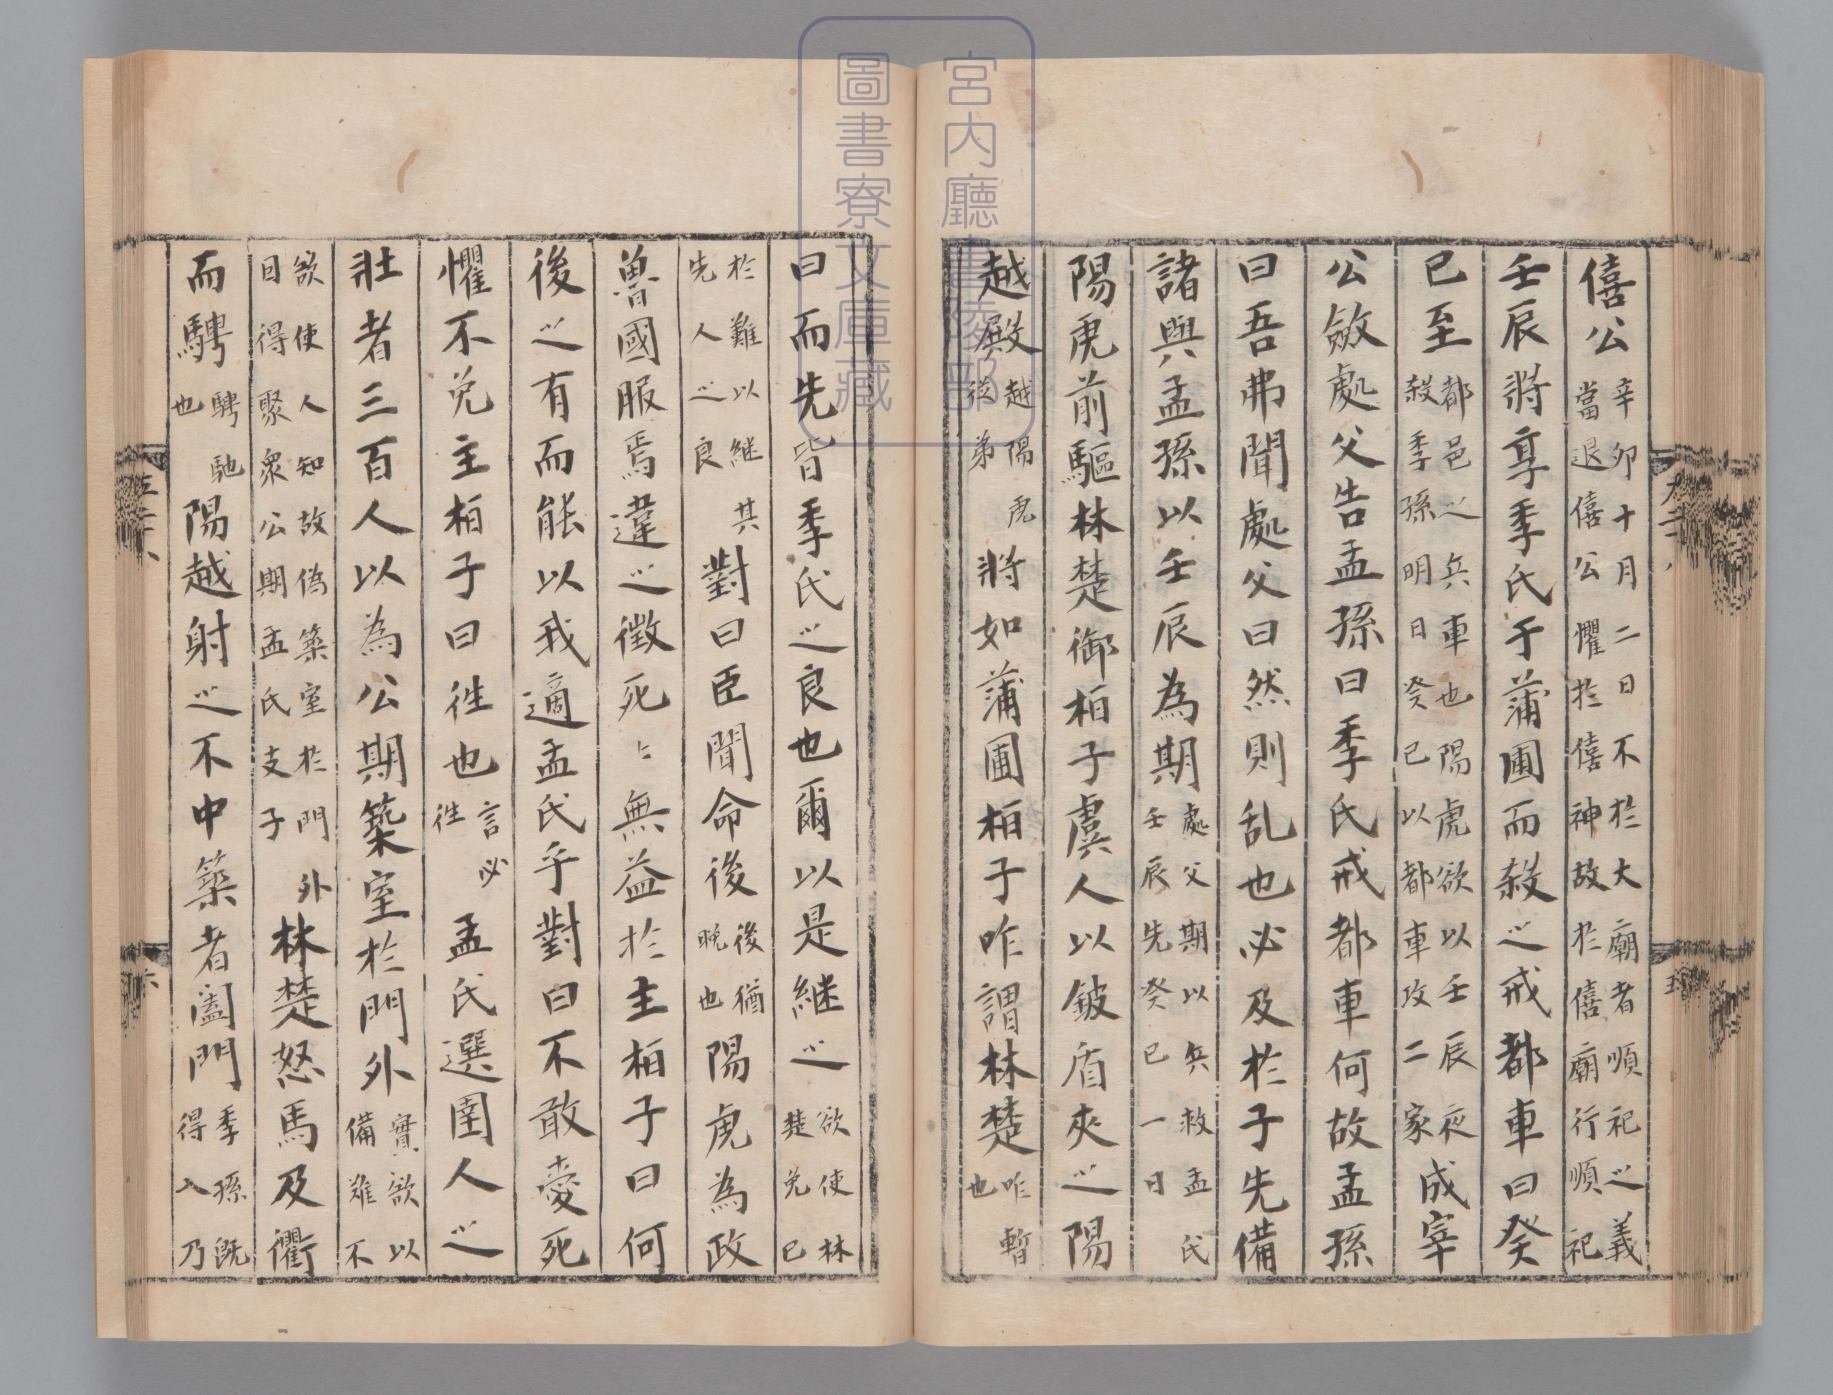 僖公辛卯十月二日不於大廟者順祀之義當退僖公懼於僖神故於僖廟行順祀
壬辰將享季氏于蒲圃而殺之戒都車曰癸
已至都邑之兵車也陽虎欲以壬辰夜殺季孫明日癸已以都車攻二家成宰
公斂處父告孟孫曰季氏戒都車何故孟孫
曰吾弗聞處父曰然則乱也必及於子先備
諸與孟孫以壬辰為期處父期以兵救孟氏壬辰先癸已一日
陽虎前驅林楚御柏子虞人以鈹盾夾之陽
越殿越陽虎從弟將如蒲圃柏子咋謂林楚咋暫也
曰而先皆季氏之良也爾以是継之欲使林楚免已
於難以継其先人之良對曰臣聞命後後猶晚也陽虎為政
魯國服焉違之徵死〻無益於主柏子曰何
後之有而能以我適孟氏乎對曰不敢愛死
懼不免主柏子曰徃也言必徃孟氏選圉人之
壯者三百人以為公期築室於門外實欲以備難不
欲使人知故偽築室於門外因得聚衆公期孟氏支子林楚怒馬及衢
而騁騁馳也陽越射之不中築者闔門季孫既得入乃
宮内廳書陵部
圖書寮文庫藏